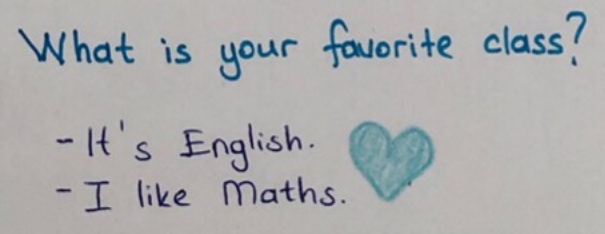 What is your favorite class?
- It's English.
- I like Maths.